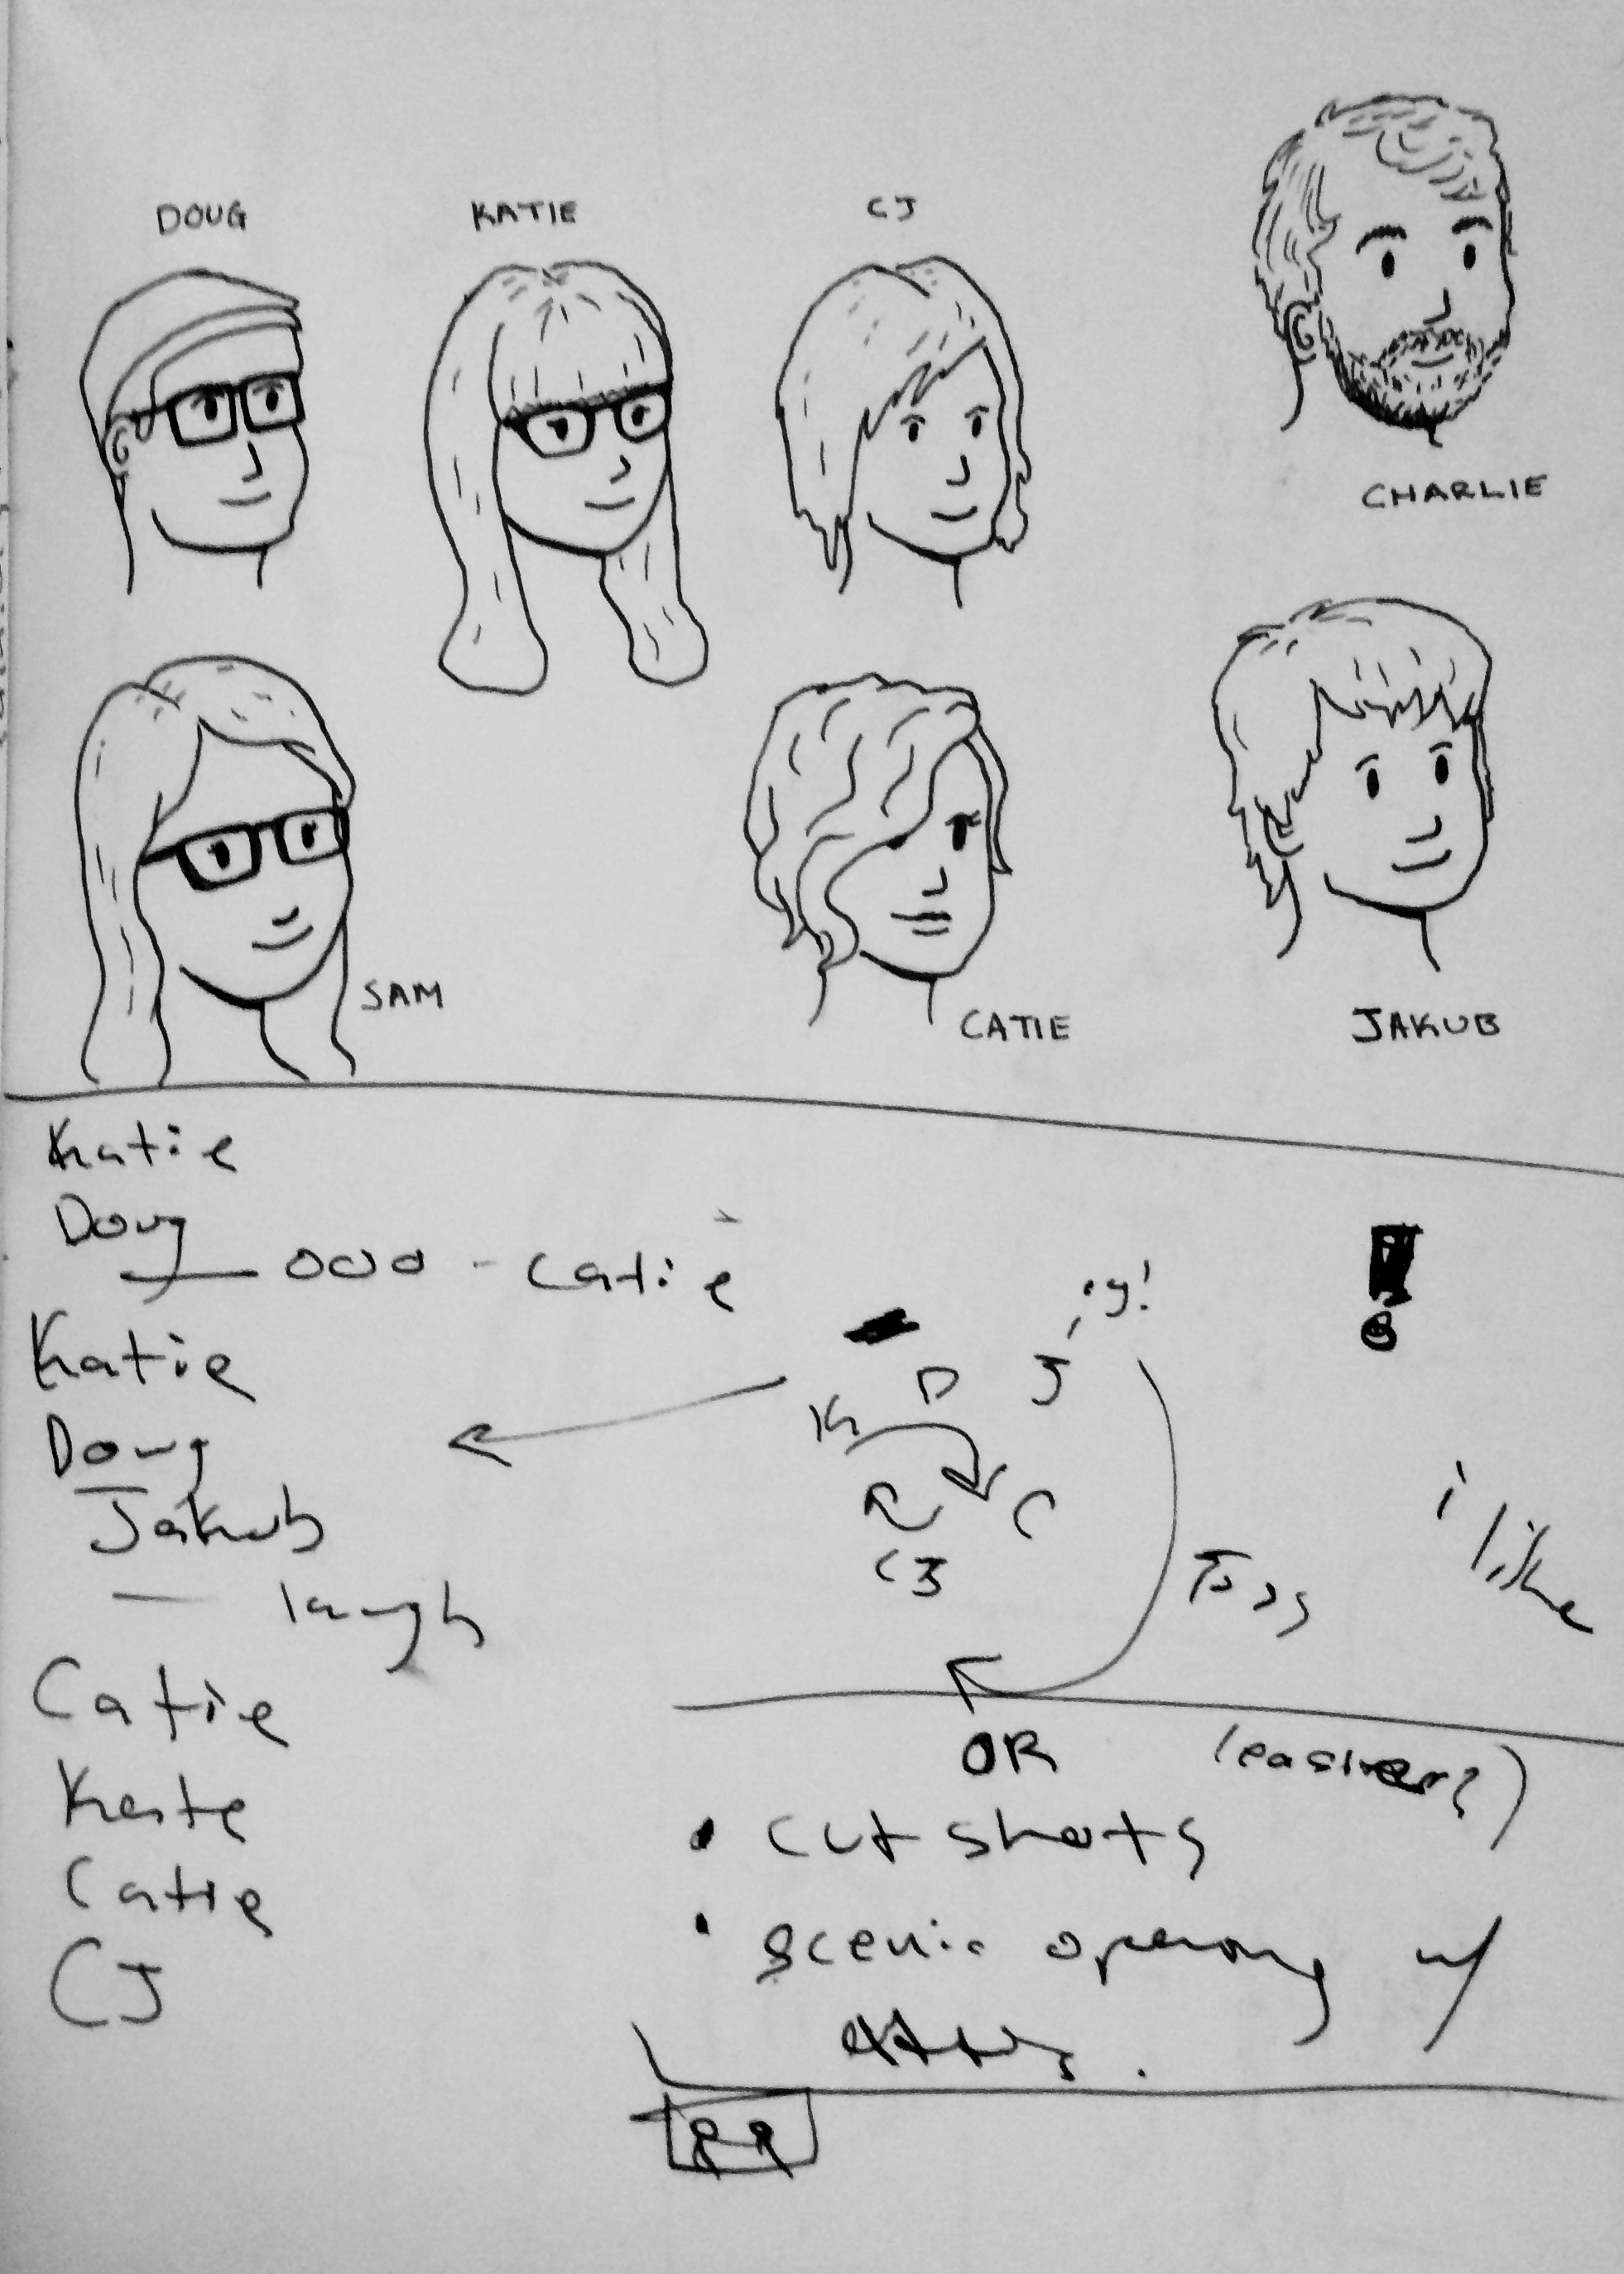 DOUG
KATIE
CJ
CHARLIE
SAM
CATIE
JAKUB
Katie
Doug
ooo - Catie
Katie
Doug
Jakub
— laugh
Catie
Katie
Catie
CJ
K D J
C
CJ
Toss
i like
OR (easier?)
• cut shots
• scenic opening w/